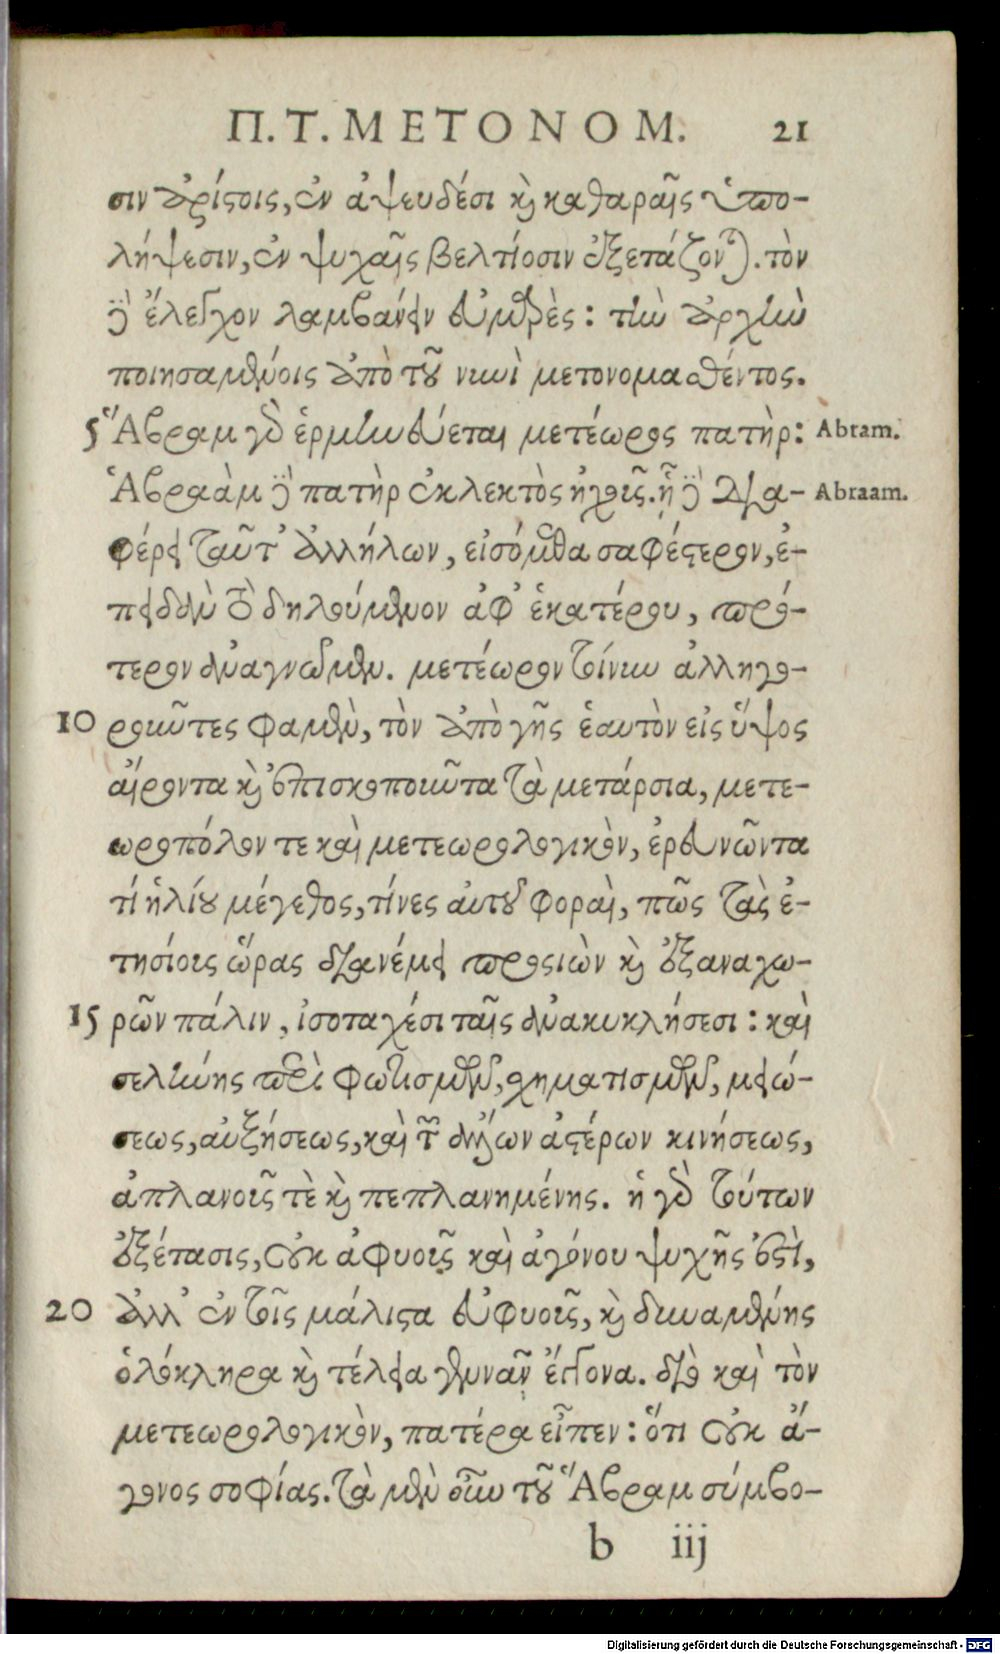 Π.Τ. ΜΕΤΟΝΟΜ. 21
σιν ἀρίστοις, ἐν ἀψευδέσι καὶ καθαραῖς ὑπο-
λήψεσιν, ἐν ψυχαῖς βελτίοσιν ἐξετάζονται. τὸν
δὲ ἔλεγχον λαμβάνειν εὐμαρὲς: τὴν ἀρχὴν
ποιησαμένοις ἀπὸ τοῦ νυνὶ μετονομασθέντος.
5 Ἅβραμ γὰρ ἑρμηνεύεται μετέωρος πατὴρ: Abram.
Ἁβραὰμ δὲ πατὴρ ἐκλεκτὸς ἠχοῖς. ᾗ δὲ δια- Abraam.
φέρει ταῦτ' ἀλλήλων, εἰσόμεθα σαφέστερον, ἐ-
πειδὰν τὸ δηλούμενον ἀφ' ἑκατέρου, πρό-
τερον ἀναγνῶμεν. μετέωρον τοίνυν ἀλληγο-
10 ροῦντες φαμὲν, τὸν ἀπὸ γῆς ἑαυτὸν εἰς ὕψος
αἴροντα καὶ ἐπισκοποῦντα τὰ μετάρσια, μετε-
ωροπόλον τε καὶ μετεωρολογικὸν, ἐρευνῶντα
τί ἡλίου μέγεθος, τίνες αὐτοῦ φοραὶ, πῶς τὰς ἐ-
τησίους ὥρας διανέμει προσιὼν καὶ ἐξαναχω-
15 ρῶν πάλιν, ἰσοταχέσι ταῖς ἀνακυκλήσεσι: καὶ
σελήνης περὶ φωτισμῶν, σχηματισμῶν, μειώ-
σεως, αὐξήσεως, καὶ τῶν ἄλλων ἀστέρων κινήσεως,
ἀπλανοῦς τὲ καὶ πεπλανημένης. ἡ γὰρ τούτων
ἐξέτασις, οὐκ ἀφυοῦς καὶ ἀγόνου ψυχῆς ἐστὶ,
20 ἀλλ' ἐν τοῖς μάλιστα εὐφυοῦς, καὶ δυναμένης
ὁλόκληρα καὶ τέλεια γεννᾶν ἔγγονα. διὸ καὶ τὸν
μετεωρολογικὸν, πατέρα εἶπεν: ὅτι οὐκ ἄ-
γονος σοφίας. τὰ μὲν οὖν τοῦ Ἅβραμ σύμβο-
b iij
Digitalisierung gefördert durch die Deutsche Forschungsgemeinschaft - DFG